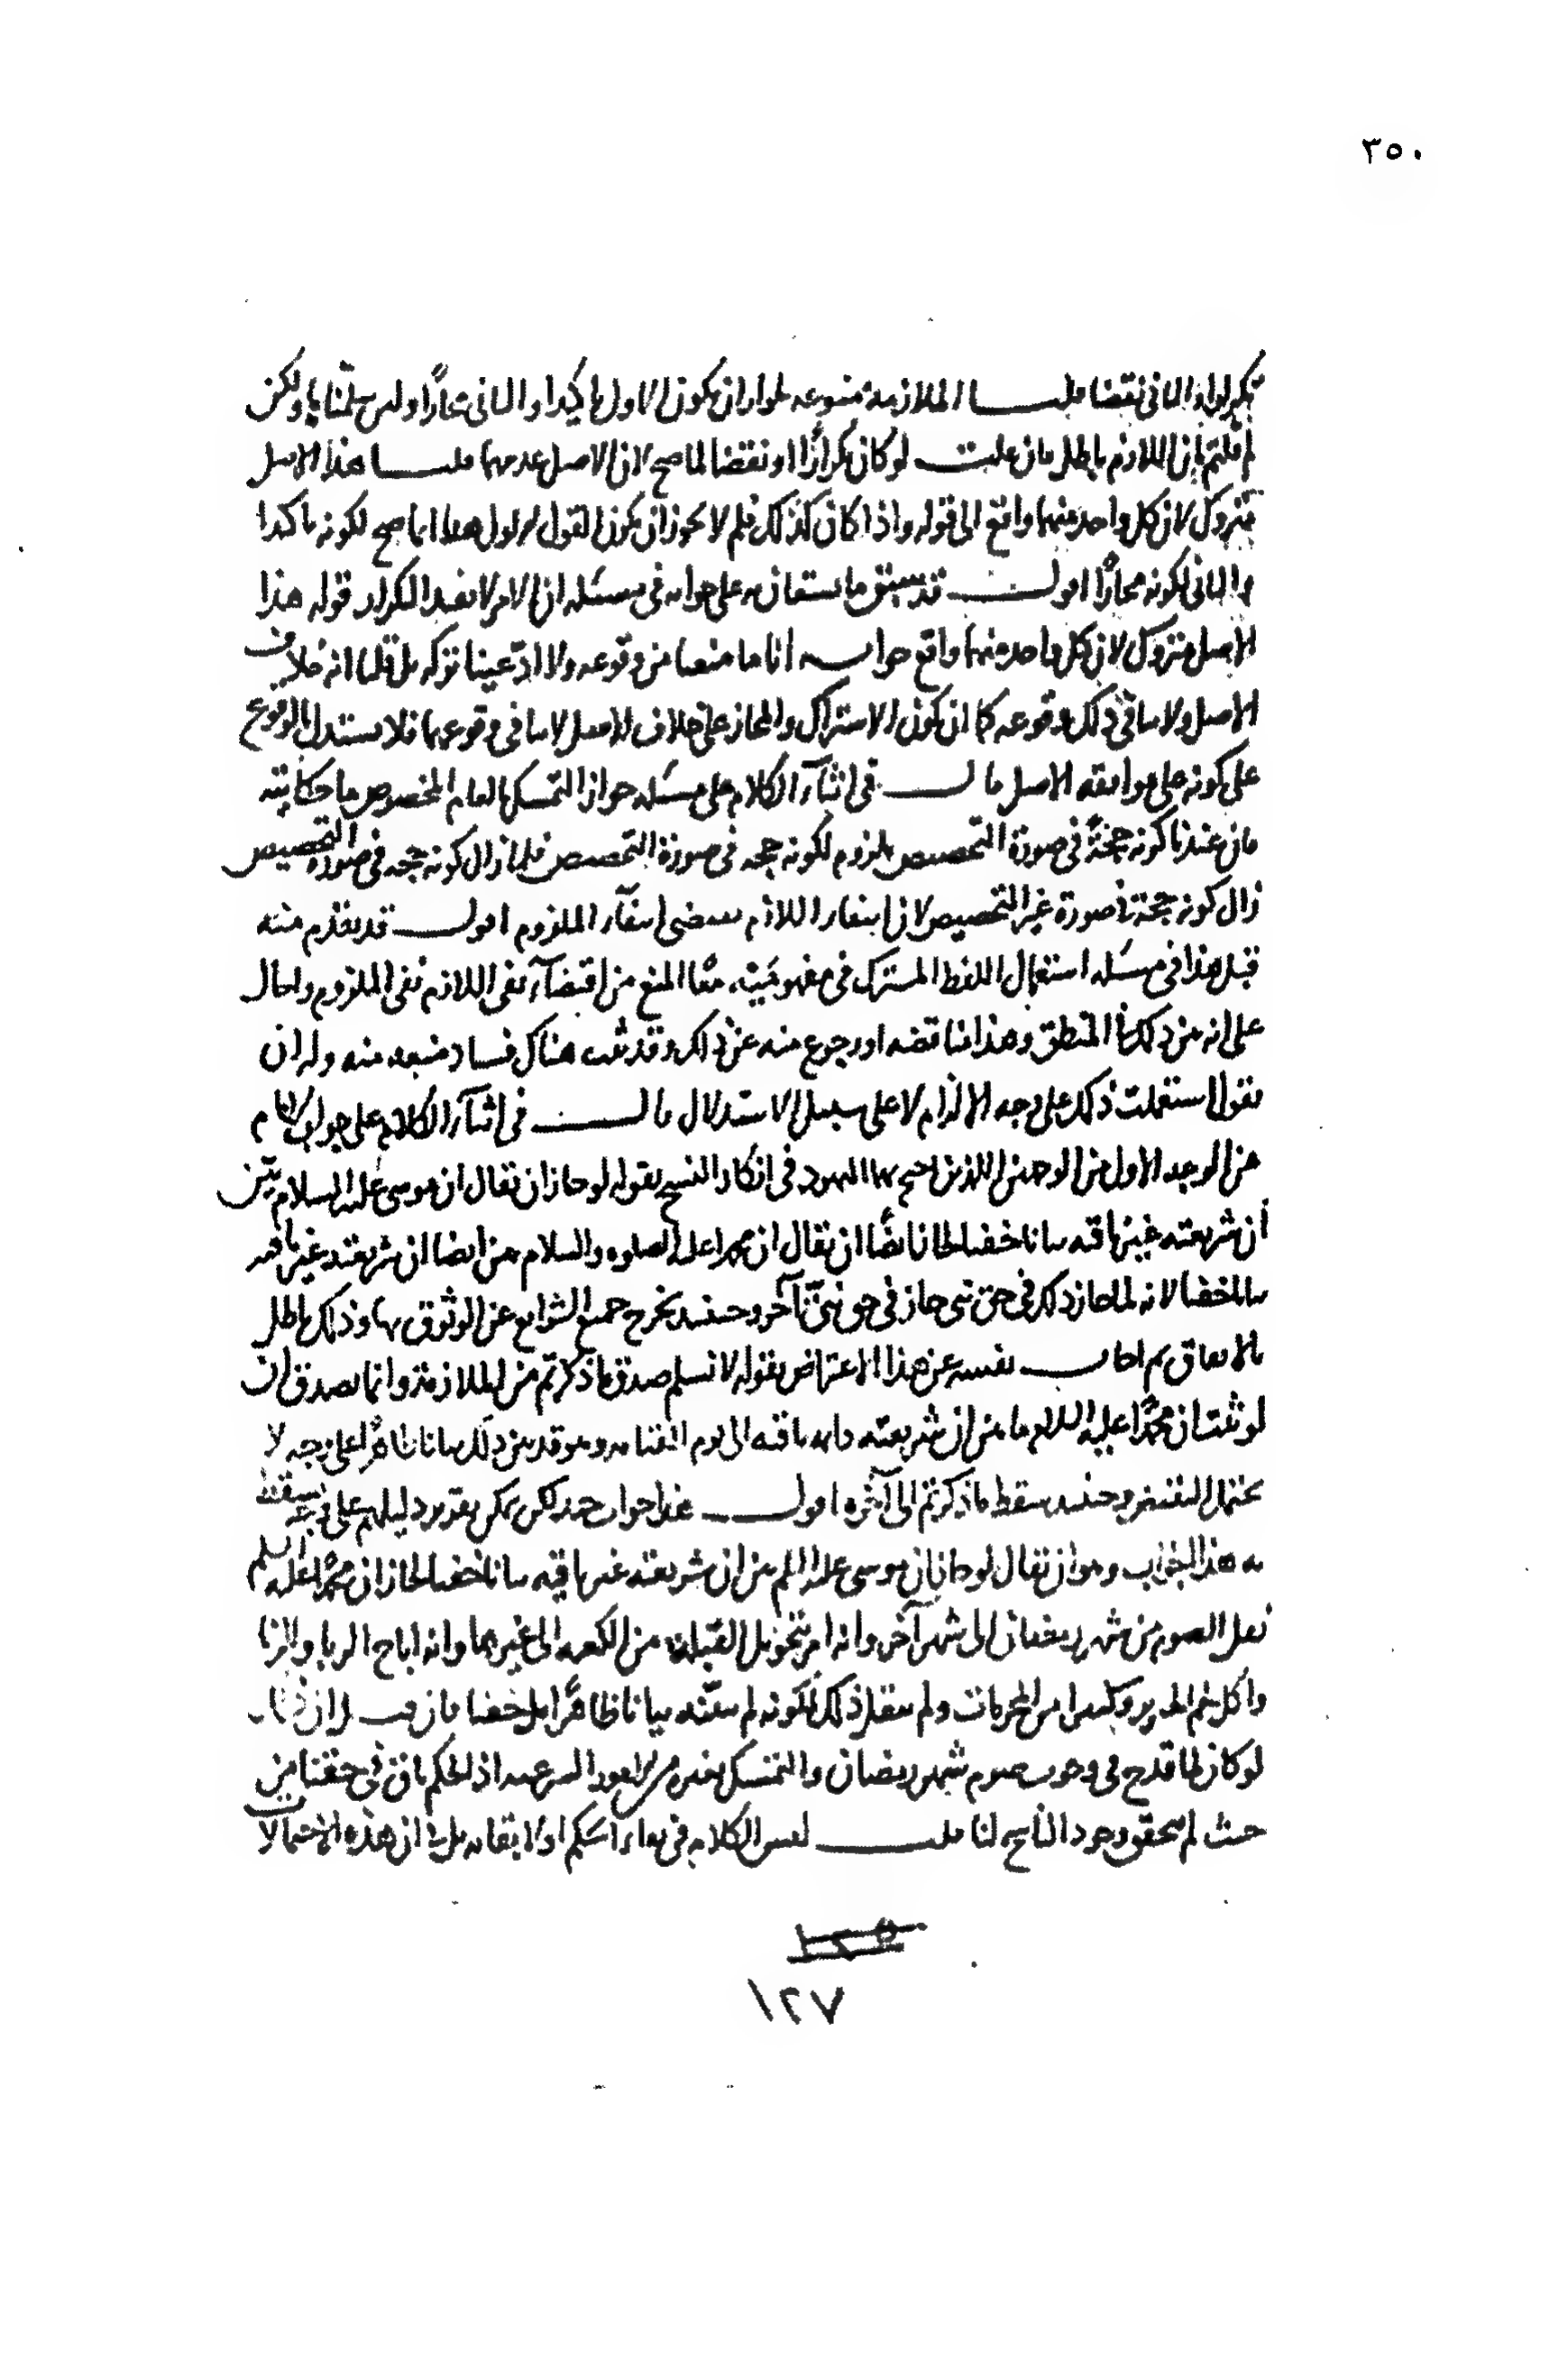 ٣٥٠
تكريرا والثاني نقضا قلنا الملازمة ممنوعة لجواز ان يكون الاول تاكيدا والثاني مجازا ولئن سلمناها ولكن
لم قلتم بان اللازم باطل فان قلت لو كان تكرارا او نقضا لما صح لان الاصل عدمهما قلنا هذا الاصل
متروك لان كل واحد منهما واقع الى قوله واذا كان كذلك فلم لا يجوز ان يكون القول الاول هاهنا انما صح لكونه تاكيدا
والثاني لكونه مجازا اقول قد سبق ما يستعان به على جوابه في مسئلة ان الامر لا يفيد التكرار قوله هذا
الاصل متروك لان كل واحد منهما واقع جوابه انا ما منعنا من وقوعه ولا ادعينا تركه بل قلنا انه خلاف
الاصل ولا ينافي ذلك وقوعه كما ان كون الاشتراك والمجاز على خلاف الاصل لا ينافي وقوعهما فلا يستدل بالوقوع
على كونه على موافقة الاصل قال في اثناء الكلام على مسئلة جواز التمسك بالعام المخصوص ما حكايته
فان عندنا كونه حجة في صورة التخصيص ملزوم لكونه حجة في صورة التخصيص فلما زال كونه حجة في صورة التخصيص
زال كونه حجة في صورة غير التخصيص لان انتفاء اللازم يقتضي انتفاء الملزوم اقول قد تقدم منه
قبل هذا في مسئلة استعمال اللفظ المشترك في مفهوميه معا المنع من اقتضاء نفي اللازم نفي الملزوم واحال
على انه بين ذلك في المنطق وهذا مناقضة او رجوع منه عن ذلك وقد ثبت هناك فساد منعه منه وله ان
يقول استعملت ذلك على وجه الالزام لا على سبيل الاستدلال قال في اثناء الكلام على جواب الامام
عن الوجه الاول من الوجهين اللذين احتج بهما اليهود في انكار النسخ بقوله لو جاز ان يقال ان موسى عليه السلام بين
ان شريعته غير باقية بيانا خفيا لجاز ايضا ان يقال ان محمدا عليه الصلوه والسلام بين ايضا ان شريعته غير باقية
بيانا خفيا لانه لما جاز ذلك في حق نبي جاز في حق نبي آخر وحينئذ يخرج جميع الشرايع عن الوثوق بها وذلك باطل
بالاتفاق ثم اجاب نفسه عن هذا الاعتراض بقوله لا نسلم صدق ما ذكرتم من الملازمة وانما يصدق ان
لو ثبت ان محمدا عليه السلام ما بين ان شريعته دايمة باقية الى يوم القيامة وهو قد بين ذلك بيانا ظاهرا على وجه لا
يحتمل التغيير وحينئذ يسقط ما ذكرتم الى آخره اقول هذا جواب جيد لكن يمكن تقرير دليلهم على وجه يسقط
به هذا الجواب وهو ان يقال لو جاز ان موسى عليه السلم بين ان شريعته غير باقية بيانا خفيا لجاز ان محمدا عليه السلم
نقل الصوم من شهر رمضان الى شهر آخر وانه امر بتحويل القبلة من الكعبة الى غيرها وانه اباح الربا والزنا
واكل لحم الخنزير وكثيرا من المحرمات ولم ينقل ذلك لكونه لم يبينه بيانا ظاهرا بل خفيا فان قيل ان ذلك
لو كان لما قدح في وجوب صوم شهر رمضان والتمسك بغيره من الامور الشرعية اذ الحكم باق في حقنا من
حيث لم يتحقق وجود الناسخ لنا قلنا ليس الكلام في بقاء الحكم او لا بقائه بل في ان هذه الاحتمالات
١٢٧